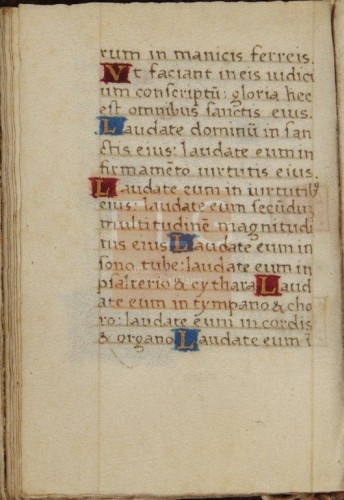 rum in manicis ferreis.
Vt faciant in eis iudici
um conscriptũ: gloria hec
est omnibus sanctis eius.
Laudate dominũ in san
ctis eius: laudate eum in
firmamẽto uirtutis eius.
Laudate eum in uirtutibꝰ
eius: laudate eum secũdũ
multitudinẽ magnitudi
nis eius Laudate eum in
sono tube: laudate eum in
psalterio & cythara Laud
ate eum in tympano & cho
ro: laudate eum in cordis
& organo Laudate eum ĩ